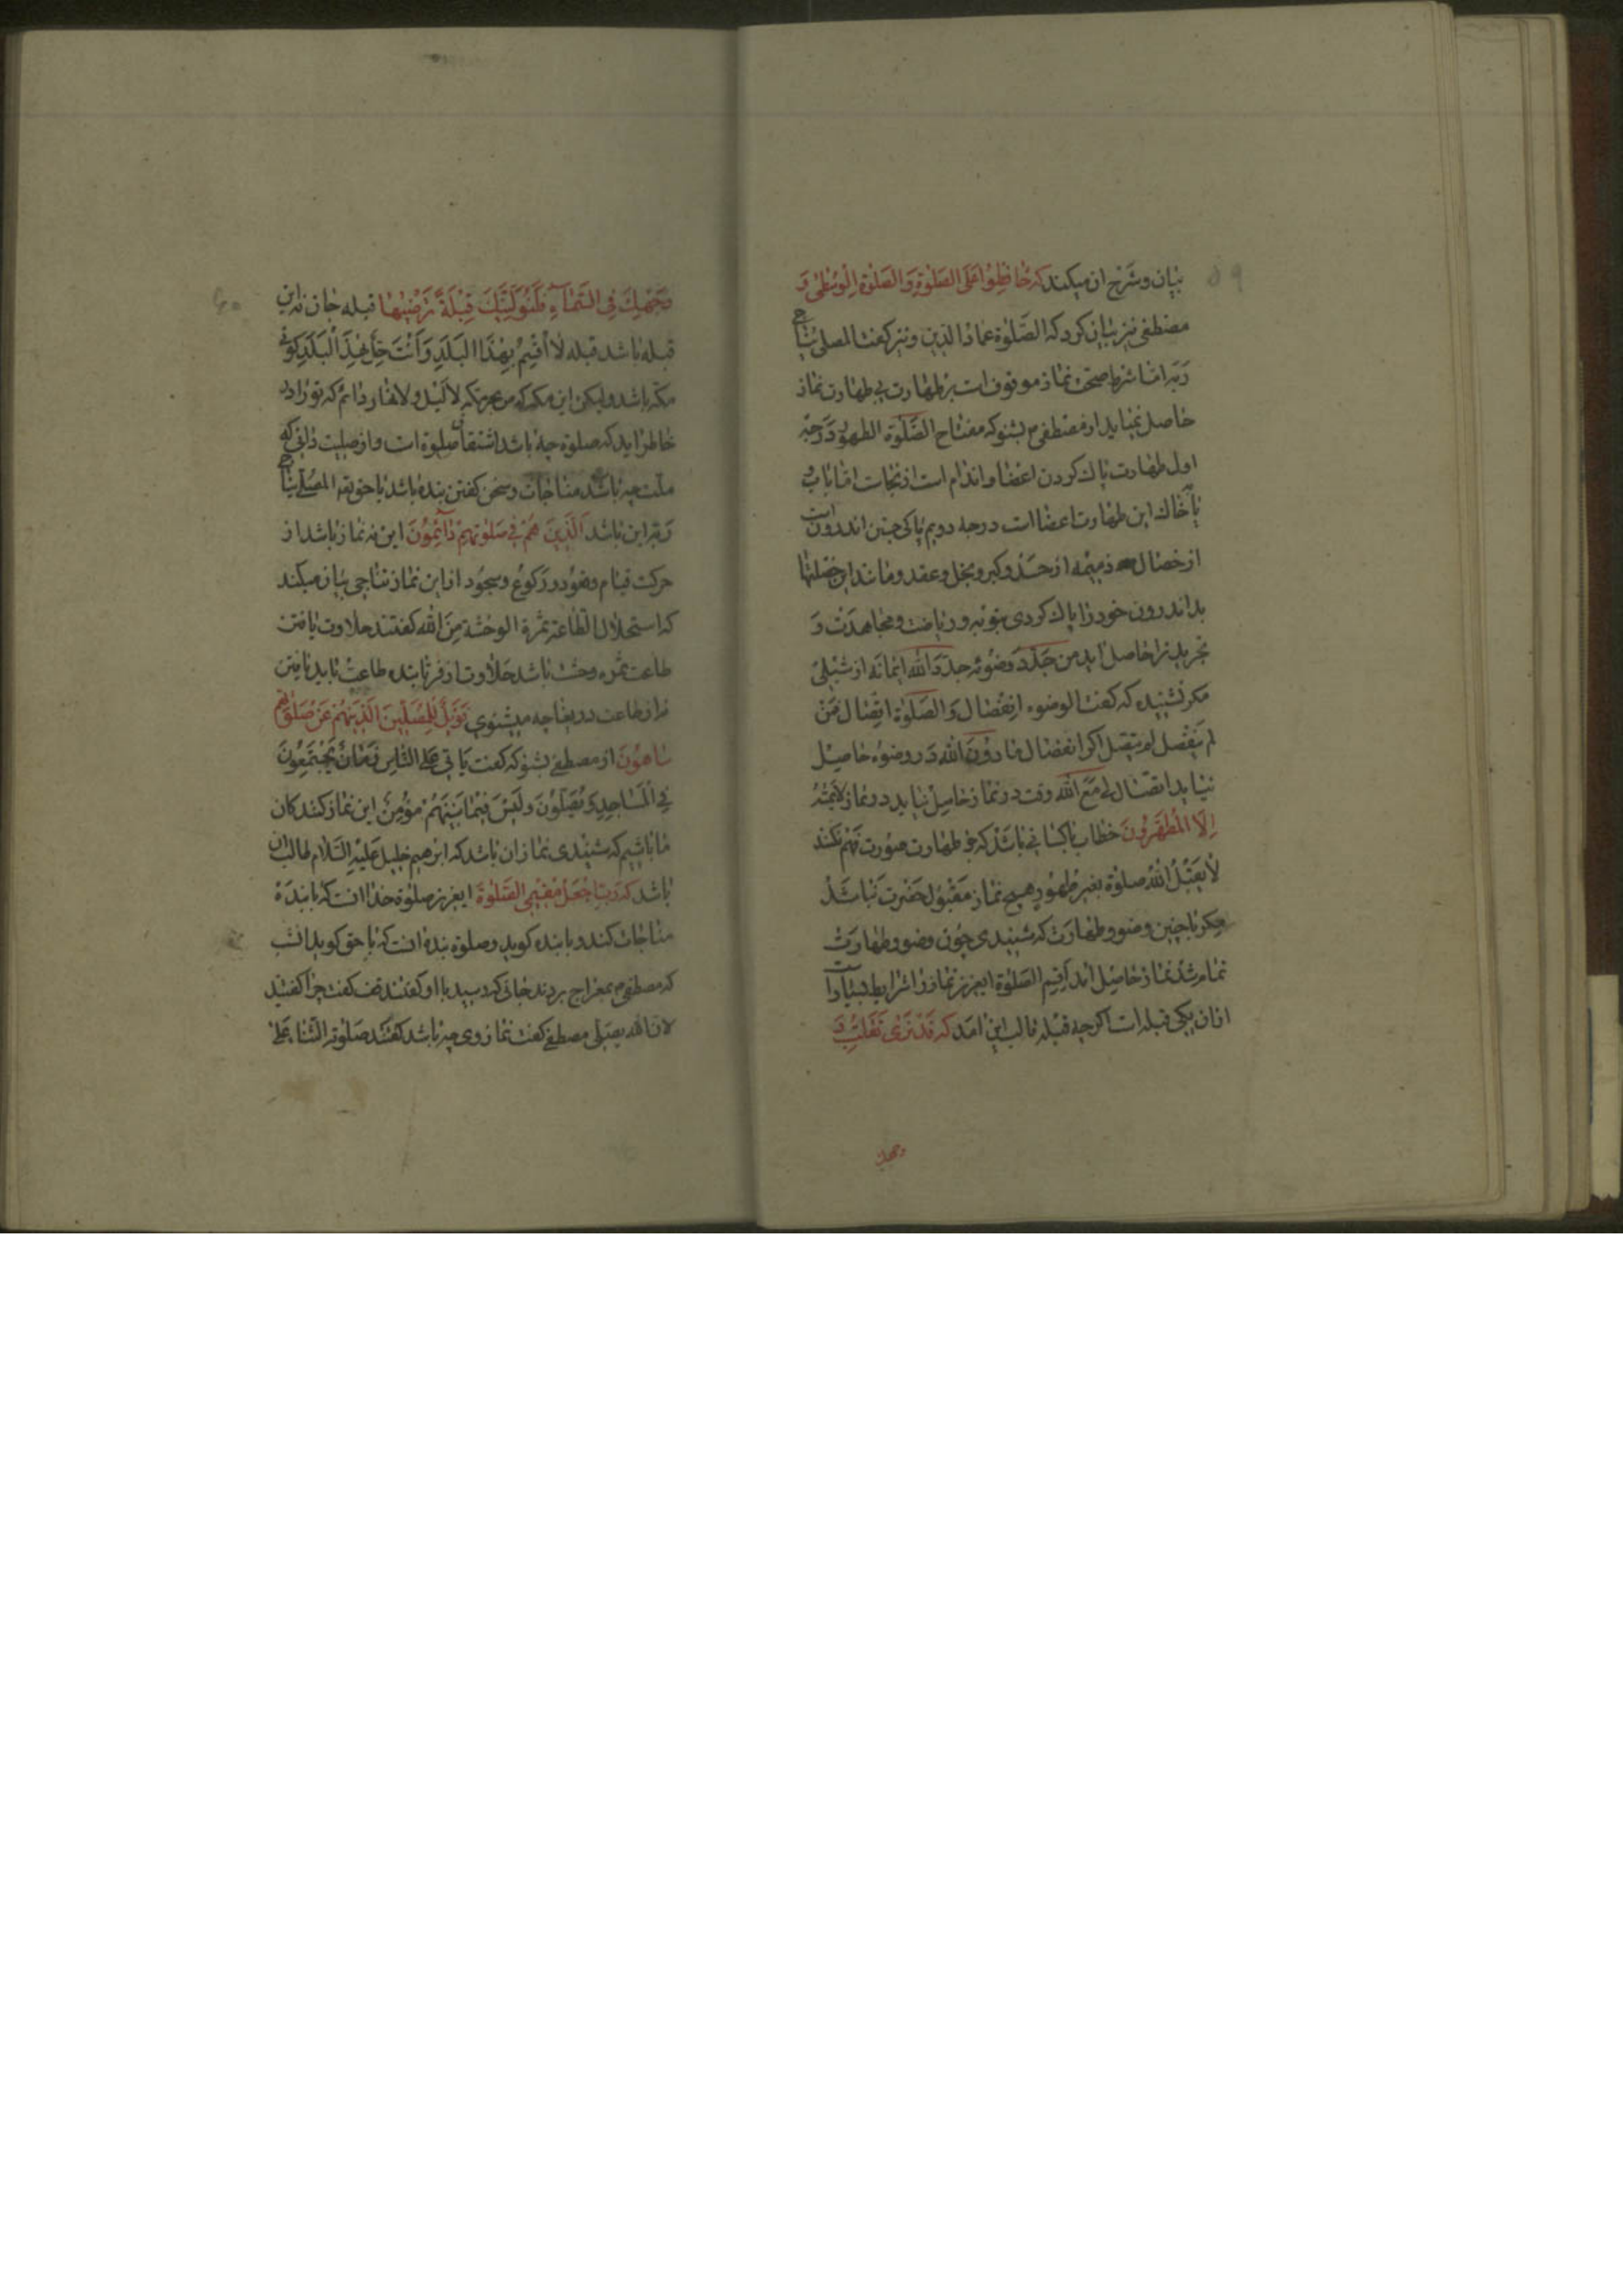 ۵۹
بیان و شرح ان میکند که حافظوا علی الصلوة و الصلوة الوسطی و
مصطفی نیز بیان کرد که الصلوة عماد الدین و نیز گفت المصلی یناجی
ربه اما شرط صحت نماز موقوف است بر طهارت بی طهارت نماز
حاصل نمیاید از مصطفی م بشنو که مفتاح الصلوة الطهور درجه
اول طهارت پاک کردن اعضا و اندام است از نجات اما باب و
یا خاک این طهارت اعضا است درجه دویم پاکی جنین اندرون است
از خصال ذمیمه از حسد و کبر و بخل و عقد و مانند این خصلتها
بد اندرون خود را پاک کردی بتوبه و ریاضت و مجاهدت و
تجرید ترا حاصل اید من جدد وضوئه جدد الله ایمانه از شبلی
مگر نشنیده که گفت الوضوء انفصال و الصلوة اتصال فمن
لم ینفصل لم یتصل اگر انفصال ما دون الله در وضوء حاصل
نیاید اتصال لی مع الله وقت در نماز حاصل نیاید در نماز لایمسه
الا المطهرون خطاب باکسانی باشد که طهارت صورت فهم نکند
لا یقبل الله صلوة بغیر طهور هیچ نماز مقبول حضرت نباشد
مگر با چنین وضو و طهارت که شنیدی چون وضو و طهارت
تمام شد نماز حاصل اند اقیم الصلوة ایعزیز نماز را شرایط بسیار است
ازان یکی قبله است اگرچه قبله قالب این امد که قد نری تقلب و
وجهک
۶۰
وجهک فی السماء فلنولینک قبلة ترضیها قبله جان نه این
قبله باشد قبله لا اقسم بهذا البلد و انت حل بهذا البلد کوی
مکه باشد ولیکن این مکه که من میگویم لا لیل و لا نهار دائم که تو را در
خاطر اید که صلوة چه باشد اشتقاق صلوة است و از صلیت دانی که
صلت چه باشد مناجات و سخن گفتن بنده باشد با حق تعالی المصلی یناجی
ربه این باشد الذین هم فی صلوتهم دائمون این نه نماز باشد از
حرکت قیام و قعود و رکوع و سجود از این نماز نناجی بیان میکند
که استحلال الطاعة ثمرة الوحشة من الله گفتند حلاوت یافتن
طاعت ثمره وحشت باشد حلاوت از فرمانده طاعت باید یافتن
نه از طاعت دریغا چه میشنوی فویل للمصلین الذینهم عن صلوتهم
ساهون از مصطفی بشنو که گفت یاتی علی الناس زمان یجتمعون
فی المساجد و یصلون و لیس فیما بینهم مؤمن این نماز کنندکان
ما باشیم که شنیدی نماز ان باشد که ابرهیم خلیل علیه السلام طالب ان
باشد که رب اجعل مقیم الصلوة ایعزیز صلوة خدا انست که با بنده
مناجات کند و با بنده کوید و صلوة بنده انست که با حق کوید انشب
که مصطفی م بمعراج بردند جائی که رسید با او گفتند قف گفت چرا گفتند
لان الله یصلی مصطفی گفت نماز وی چه باشد گفتند صلوته الثناء علی